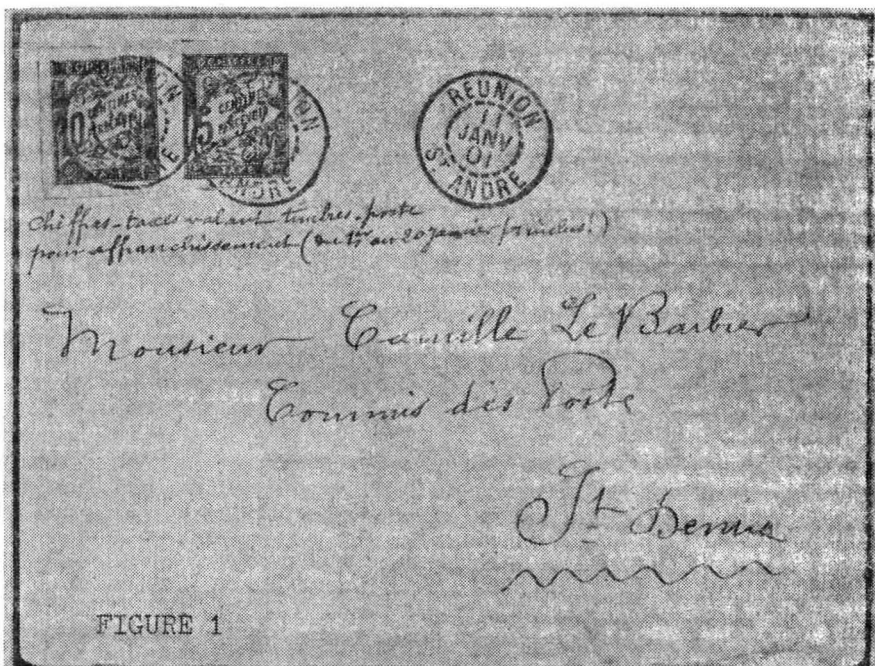 10 CENTIMES A PERCEVOIR
5 CENTIMES A PERCEVOIR
REUNION
11
JANV
01
ST ANDRE
Chiffres-taxes valant timbres-poste
pour affranchissement (du 1er au 20 janvier inclus!)
Monsieur Camille Le Barbier
Commis des Poste
St Denis
FIGURE 1